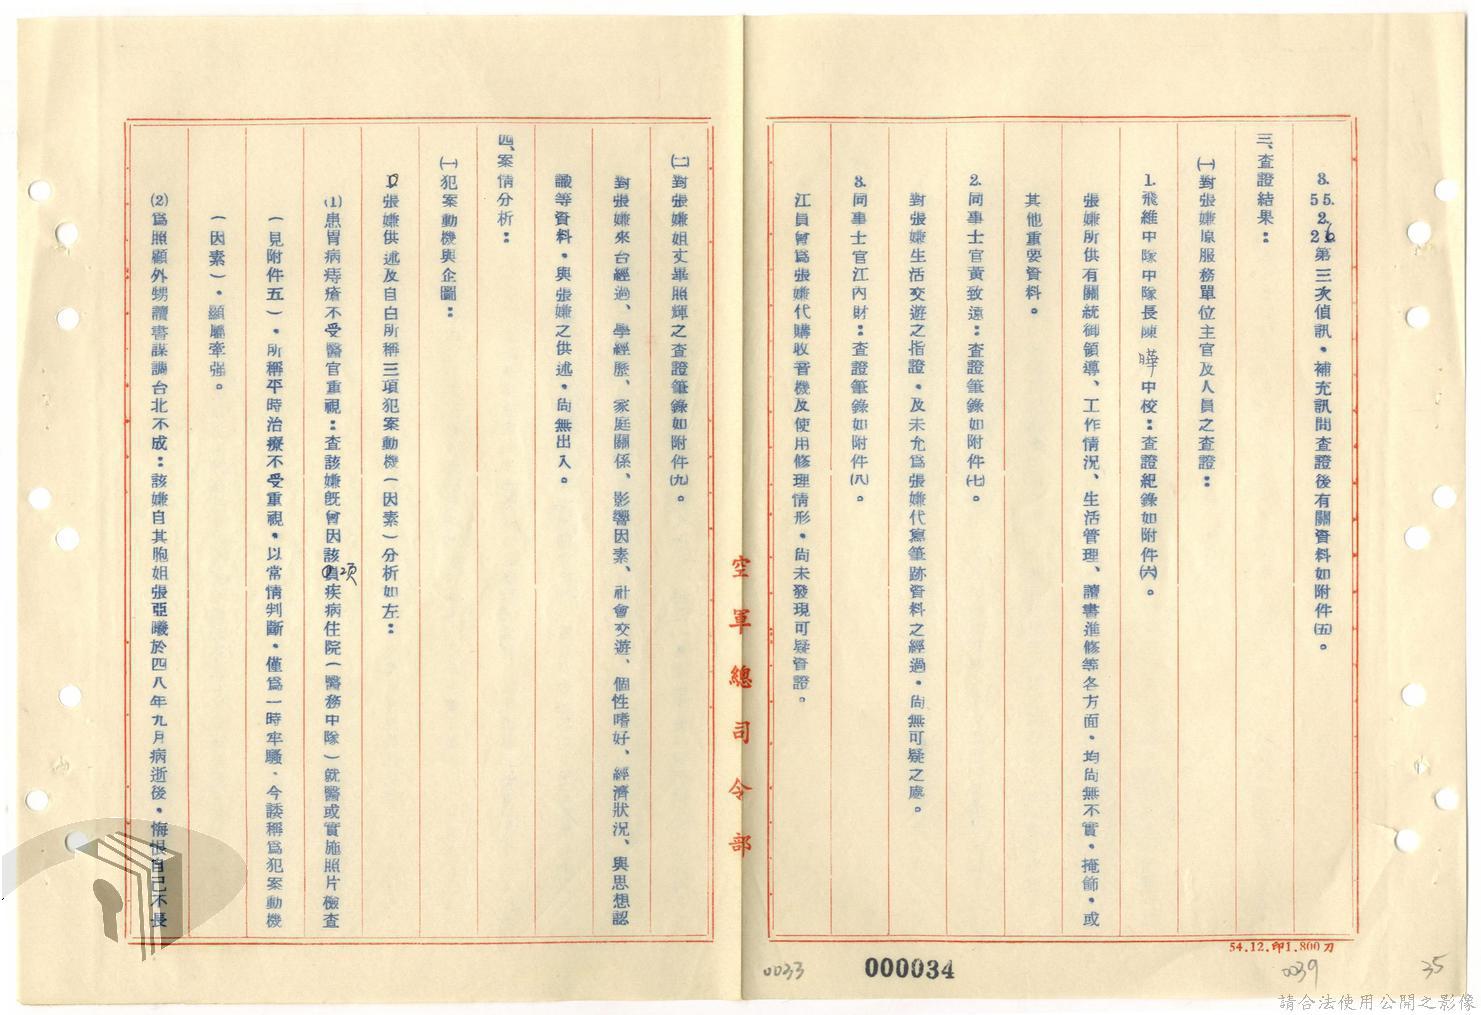 3. 55. 2. 26第三次偵訊，補充訊問查證後有關資料如附件㈤。
三、查證結果：
㈠對張嫌原服務單位主官及人員之查證：
1.飛維中隊中隊長陳曄中校：查證紀錄如附件㈥。
張嫌所供有關統御領導、工作情況、生活管理、讀書進修等各方面，均尚無不實，掩飾，或
其他重要資料。
2.同事士官黃致遠：查證筆錄如附件㈦。
對張嫌生活交遊之指證，及未允為張嫌代寫筆跡資料之經過，尚無可疑之處。
3.同事士官江內財：查證筆錄如附件㈧。
江員曾為張嫌代購收音機及使用修理情形，尚未發現可疑資證。
空軍總司令部
㈡對張嫌姐丈畢照輝之查證筆錄如附件㈨。
對張嫌來台經過、學經歷、家庭關係、影響因素、社會交遊、個性嗜好、經濟狀況、與思想認
識等資料，與張嫌之供述，尚無出入。
四、案情分析：
㈠犯案動機與企圖：
1.張嫌供述及自白所稱三項犯案動機（因素）分析如左：
⑴患胃病痔瘡不受醫官重視：查該嫌既曾因該項疾病住院（醫務中隊）就醫或實施照片檢查
（見附件五），所稱平時治療不受重視，以常情判斷，僅為一時牢騷，今諉稱為犯案動機
（因素），顯屬牽強。
⑵為照顧外甥讀書謀調台北不成：該嫌自其胞姐張亞曦於四八年九月病逝後，悔恨自己不長
54.12.印1.800刀
0033
000034
0039
35
請合法使用公開之影像